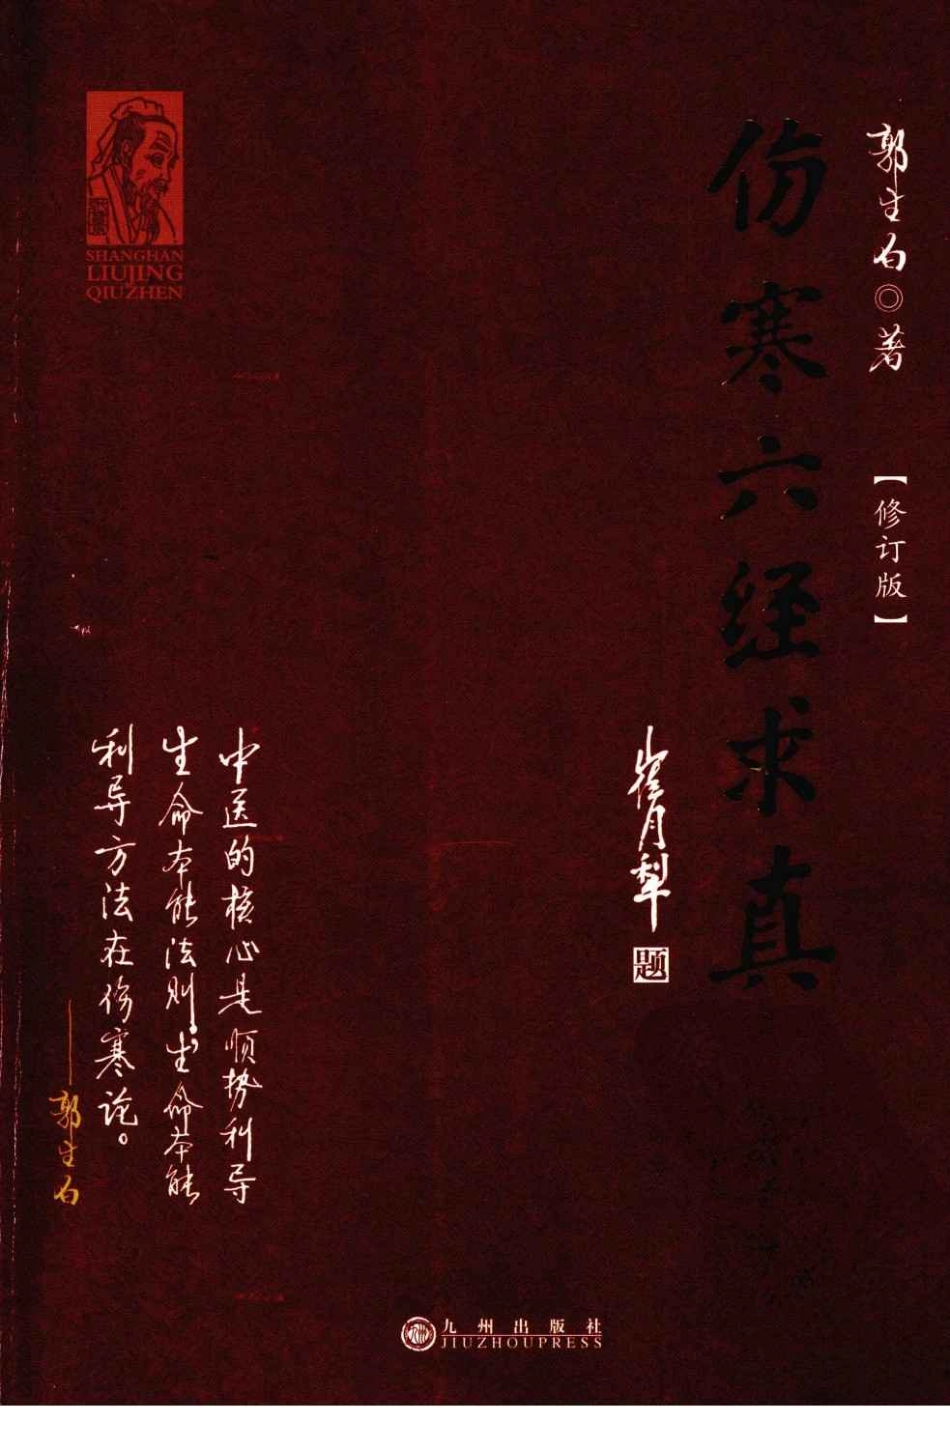 郭生白◎著
【修订版】
伤寒六经求真
崔月犁
题
中医的核心是顺势利导
生命本能法则，生命本能
利导方法在伤寒论。
——郭生白
SHANGHAN
LIUJING
QIUZHEN
九州出版社
JIUZHOUPRESS